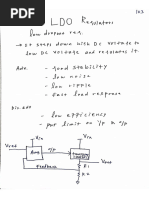 163
LDO Regulators
low dropout reg.
→ It steps down with Dc voltage to
low Dc voltage and regulates it
Adv - good stability
- low noise
- low ripple
- fast load response
Dis adv
- low efficiency
- put limit on I/P & O/P
Vref
Vin
O/P
Vout
Feedback
R1
R2